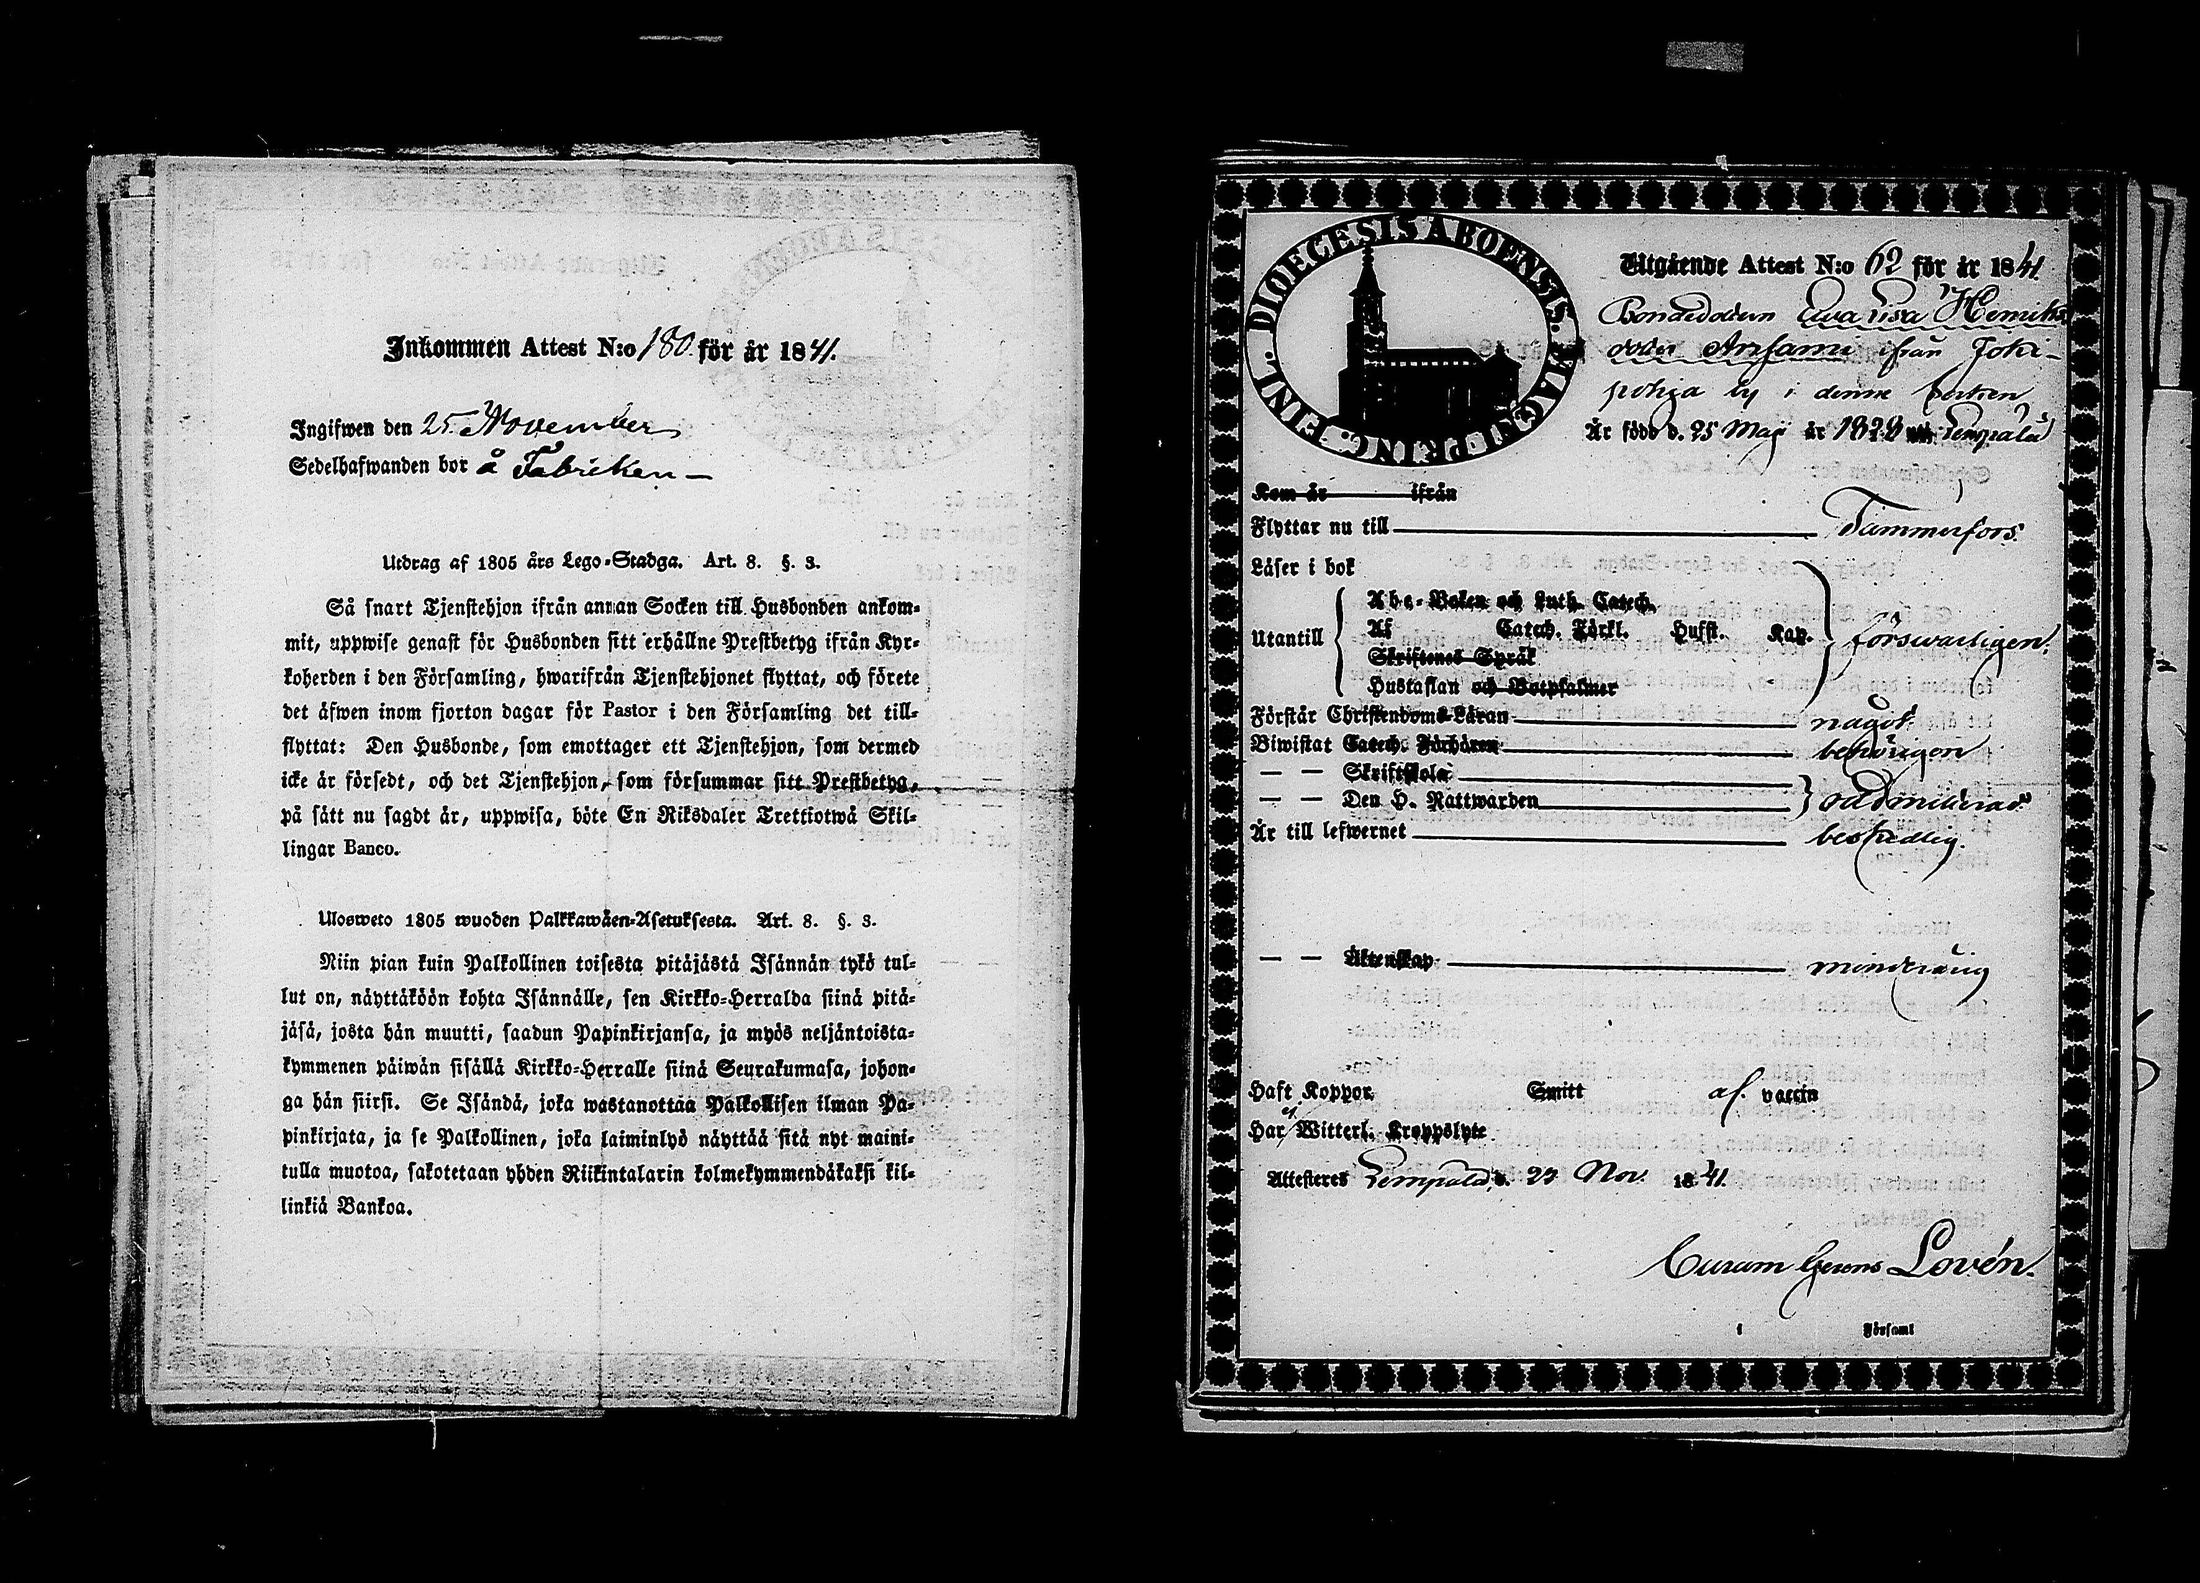 Inkommen Attest N:o 180. för år 1841.
Ingifwen den 25. November
Sedelhafwanden bor å Fabriken —
Utdrag af 1805 års Lego-Stadga. Art. 8. §. 3.
Så snart Tjenstehjon ifrån annan Socken till Husbonden ankom-
mit, uppwise genast för Husbonden sitt erhållne Prestbetyg ifrån Kyr-
koherden i den Församling, hwarifrån Tjenstehjonet flyttat, och förete
det äfwen inom fjorton dagar för Pastor i den Församling det till-
flyttat: Den Husbonde, som emottager ett Tjenstehjon, som dermed
icke är försedt, och det Tjenstehjon, som försummar sitt Prestbetyg,
på sätt nu sagdt är, uppwisa, böte En Riksdaler Trettiotwå Skil-
lingar Banco.
Ulosweto 1805 wuoden Palkkawäen-Asetuksesta. Art. 8. §. 3.
Niin pian kuin Palkollinen toisesta pitäjästä Isännän tykö tul-
lut on, näyttäköön kohta Isännälle, sen Kirkko-Herralda siinä pitä-
jäsä, josta hän muutti, saadun Papinkirjansa, ja myös neljäntoista-
kymmenen päiwän sisällä Kirkko-Herralle siinä Seurakunnasa, johon-
ga hän siirsi. Se Isändä, joka wastanottaa Palkollisen ilman Pa-
pinkirjata, ja se Palkollinen, joka laiminlyö näyttää sitä nyt maini-
tulla muotoa, sakotetaan yhden Riikintalarin kolmekymmendäkaksi kil-
linkiä Bankoa.
DIOECESIS ABOENSIS. MAGNI PRINC. FINL.
Utgående Attest N:o 62 för år 1841.
Bondedottern Ewa Lisa Henriks
dotter Anssami ifrån Joki-
pohja by i denne Socken
Är född d. 25 Maji år 1828 uti Lempälä
Kom år ifrån
Flyttar nu till Tammerfors.
Läser i bok
Abc-Boken och Luth. Catech.
Utantill Af Catech. Förkl. Hufst. Kap. försvarligen.
Skriftenes Språk
Hustaflan och Botpsalmer
Förstår Christendoms-Läran något
Biwistat Catech. Förhören behörigen
— — Skriftskola
— — Den H. Nattwarden oadmitterad
Är till lefwernet beskedlig.
— — Äktenskap minderårig
Haft Koppor Smitt af vaccin
Har ej Witterl. Kroppslyte
Attesteres Lempälä, d. 23 Nov. 1841.
Curam Gerens Lovén.
i Församl